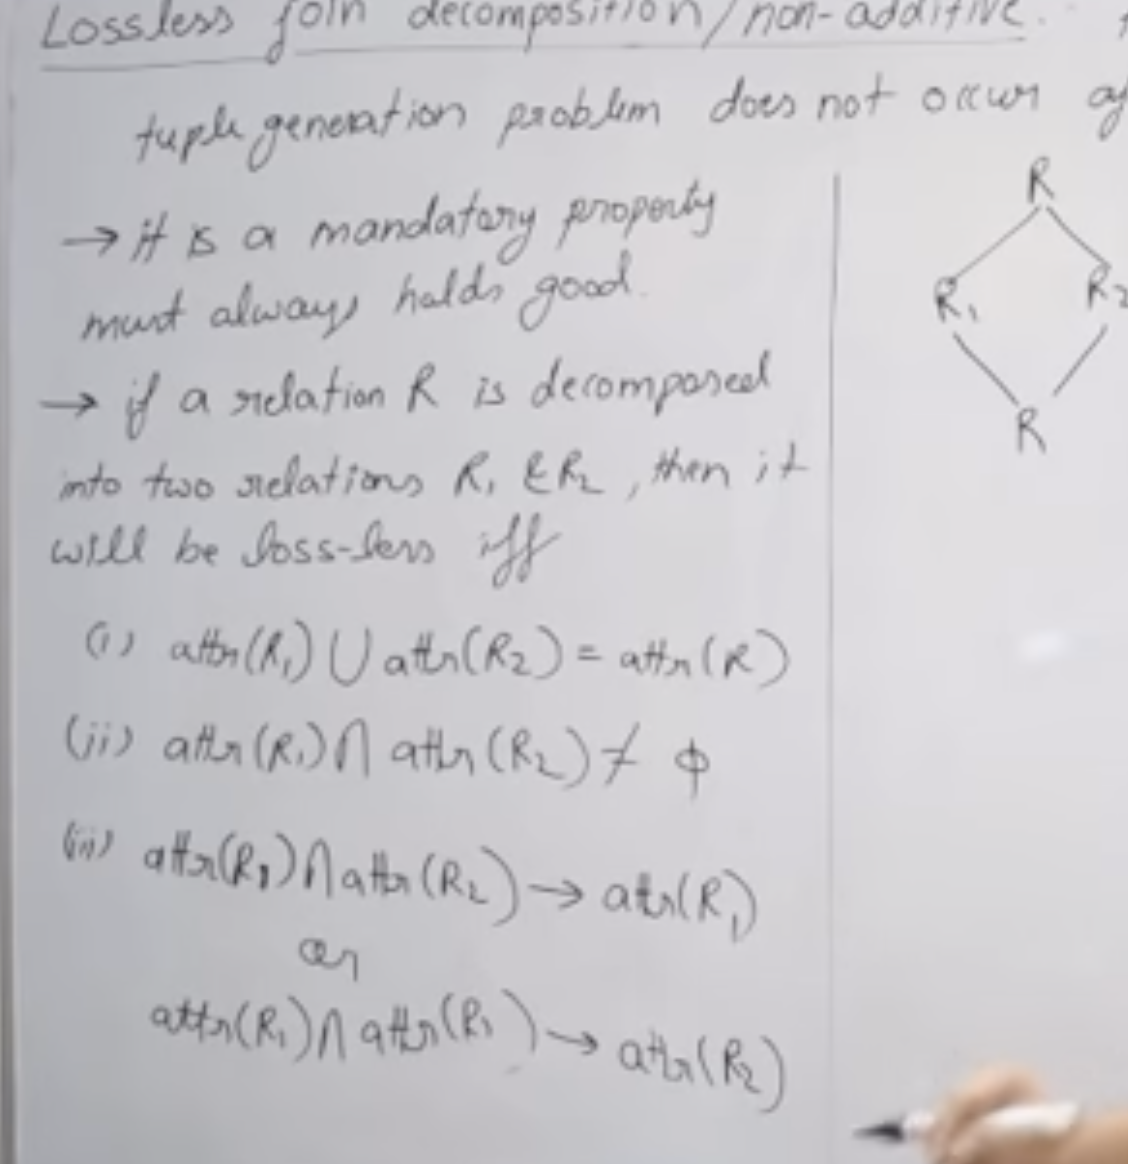 Lossless join decomposition/non-additive.
tuple generation problem does not occur
→ it is a mandatory property
must always holds good.
→ if a relation R is decomposed
into two relations R₁ & R₂, then it
will be loss-less iff
(i) attr(R₁) ∪ attr(R₂) = attr(R)
(ii) attr(R₁) ∩ attr(R₂) ≠ ϕ
(iii) attr(R₁) ∩ attr(R₂) → attr(R₁)
or
attr(R₁) ∩ attr(R₁) → attr(R₂)
R
R₁ R₂
R